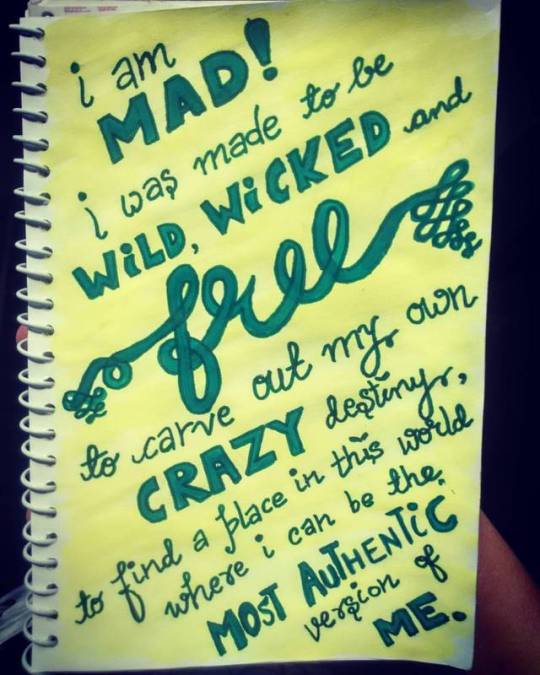 i am
MAD!
i was made to be
WiLD, WiCKED and
free
to carve out my own
CRAZY destiny,
to find a place in this world
where i can be the
MOST AUTHENTiC
version of
ME.